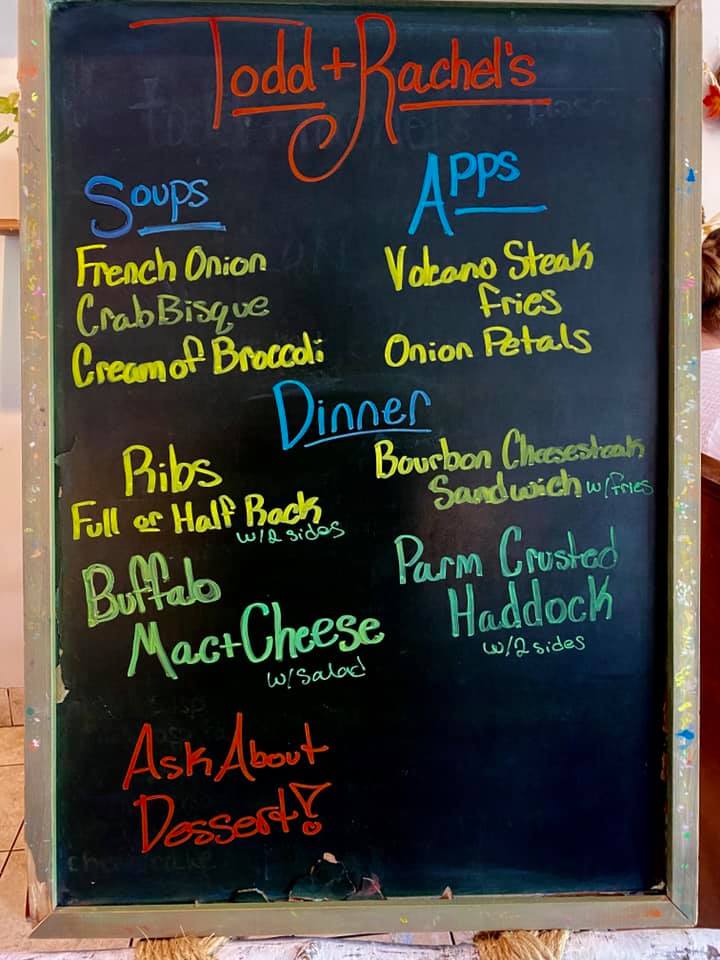 Todd + Rachel's
Soups
French Onion
Crab Bisque
Cream of Broccoli
Apps
Volcano Steak
Fries
Onion Petals
Dinner
Ribs
Full or Half Rack
w/2 sides
Buffalo
Mac + Cheese
w/ Salad
Bourbon Cheesesteak
Sandwich w/ fries
Parm Crusted
Haddock
w/2 sides
Ask About
Dessert!